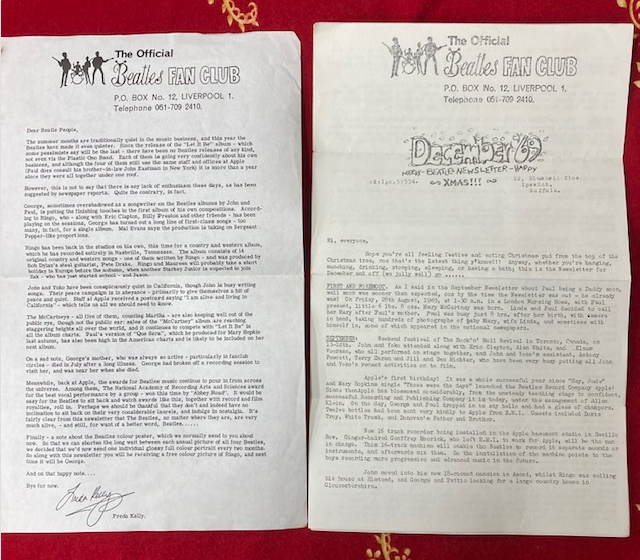 The Official
Beatles FAN CLUB
P.O. BOX No. 12, LIVERPOOL 1.
Telephone 051-709 2410.
Dear Beatle People,
The summer months are traditionally quiet in the music business, and this year the
Beatles have made it even quieter. Since the release of the "Let It Be" album - which
some pessimists say will be the last - there have been no Beatles releases of any kind,
not even via the Plastic Ono Band. Each of them is going very confidently about his own
business, and although the four of them still use the same staff and offices at Apple
(Paul does consult his brother-in-law John Eastman in New York) it is more than a year
since they were all together under one roof.
However, this is not to say that there is any lack of enthusiasm these days, as has been
suggested by newspaper reports. Quite the contrary, in fact.
George, sometimes overshadowed as a songwriter on the Beatles albums by John and
Paul, is putting the finishing touches to the first album of his own compositions. Accord-
ing to Ringo, who - along with Eric Clapton, Billy Preston and other friends - has been
playing on the sessions, George has turned out a long line of first-class songs - too
many, in fact, for a single album. Mal Evans says the production is taking on Sergeant
Pepper-like proportions.
Ringo has been back in the studios on his own, this time for a country and western album,
which he has recorded entirely in Nashville, Tennessee. The album consists of 14
original country and western songs - one of them written by Ringo - and was produced by
Bob Dylan's steel guitarist, Pete Drake. Ringo and Maureen will probably take a short
holiday in Europe before the autumn, when another Starkey Junior is expected to join
Zak - who has just started school - and Jason.
John and Yoko have been conspicuously quiet in California, though John is busy writing
songs. Their peace campaign is in abeyance - primarily to give themselves a bit of
peace and quiet. Staff at Apple received a postcard saying "I am alive and living in
California" - which tells us all we should need to know.
The McCartneys - all five of them, counting Martha - are also keeping well out of the
public eye, though not the public ear: sales of the "McCartney" album are reaching
staggering heights all over the world, and it continues to compete with "Let It Be" in
all the album charts. Paul's version of "Que Sera", which he produced for Mary Hopkin
last autumn, has also been high in the American charts and is likely to be included on her
next album.
On a sad note, George's mother, who was always so active - particularly in fanclub
circles - died in July after a long illness. George had broken off a recording session to
visit her, and was near her when she died.
Meanwhile, back at Apple, the awards for Beatles music continue to pour in from across
the universe. Among them, The National Academy of Recording Arts and Sciences award
for the best vocal performance by a group - won this time by "Abbey Road". It would be
easy for the Beatles to sit back and watch awards like this, together with record and film
royalties, roll in. Perhaps we should be thankful that they don't and indeed have no
inclination to sit back on their very considerable laurels, and indulge in nostalgia. It's
fairly clear from this newsletter that The Beatles, no matter where they are, are very
much alive - and still, for want of a better word, Beatles.....
Finally - a note about the Beatles colour poster, which we normally send to you about
now. So that we can shorten the long wait between each annual picture of all four Beatles,
we decided that we'd now send one individual glossy full colour portrait every two months.
So along with this newsletter you will be receiving a free colour picture of Ringo, and next
time it will be George.
And on that happy note....
Bye for now.
Freda Kelly
Freda Kelly.
The Official
Beatles FAN CLUB
P.O. BOX No. 12, LIVERPOOL 1.
Telephone 051-709 2410.
December '69
MERRY BEATLES NEWSLETTER - HAPPY
XMAS!!!
Ipswich,
Suffolk.
Hi, everyone,
Hope you're all feeling festive and eating Christmas pud from the top of the
Christmas tree, cos that's the latest thing y'know!!! Anyway, whether you're hanging,
munching, drinking, shopping, sleeping, or having a bath; this is the Newsletter for
December and off (we jolly well) go ......
As I said in the September Newsletter about Paul being a Daddy soon,
On Friday, 28th August, 1969, at 1-30 a.m. in a London Nursing Home, with Paul
present, little 6 lbs. 8 ozs. Mary McCartney was born. Linda and Paul decided to call
her Mary after Paul's mother.
Weekend festival of The Rock'n' Roll Revival in Toronto, Canada, on
John and Yoko attended along with Eric Clapton, Alan White, and Klaus
Voorman, who all performed on stage together, and John and Yoko's assistant, Antony
Fawcett, Terry Doran and Jill and Dan Richter, who have been very busy putting all John
and Yoko's recent activities on to film.
Apple's first birthday! It was a whole successful year since "Hey, Jude"
and Mary Hopkins single "Those were the days" launched the Beatles Record Company Apple!
Now 16 track recorder being installed in the Apple basement studio in Saville
Row. Ginger-haired Geoffrey Emerick, who left E.M.I. to work for Apple, will be the man
in charge.
John moved into his new 18-roomed mansion in Ascot, whilst Ringo was selling
his house at Elstead, and George and Pattie looking for a large country house in
Gloucestershire.